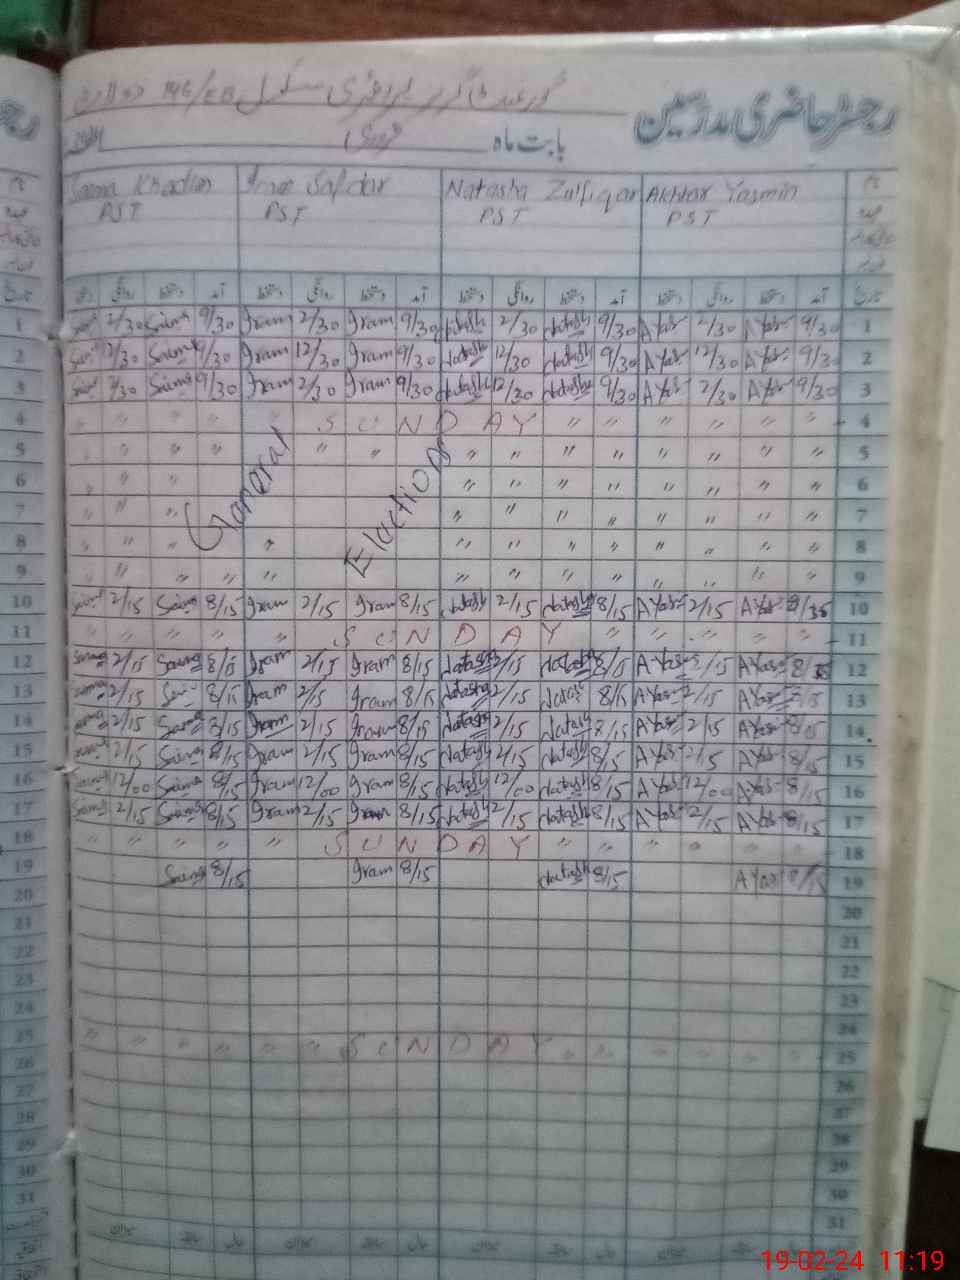 رجسٹر حاضری مدرسین
گورنمنٹ گرلز پرائمری سکول 146/EB
بابت ماہ فروری
Saima Khadim Iram Safdar Natasha Zulfiqar Akhtar Yasmin
PST PST PST PST
دستخط روانگی دستخط آمد دستخط روانگی دستخط آمد دستخط روانگی دستخط آمد دستخط روانگی دستخط آمد تاریخ
1 2/30 Saima 9/30 Iram 2/30 Iram 9/30 Natasha 2/30 Natasha 9/30 AYas 2/30 AYas 9/30 1
2 12/30 Saima 9/30 Iram 12/30 Iram 9/30 Natasha 12/30 Natasha 9/30 AYas 12/30 AYas 9/30 2
3 2/30 Saima 9/30 Iram 2/30 Iram 9/30 Natasha 12/30 Natasha 9/30 AYas 2/30 AYas 9/30 3
4 " " " " " SUNDAY " " " " " " 4
5 " " " " " " " " " " " " 5
6 " " " " " " " " " 6
7 " " " " " " " " " " " 7
General Elactions
8 " " " " " " " " " " " " 8
9 " " " " " " " " " " " " " 9
10 2/15 Saima 8/15 Iram 2/15 Iram 8/15 Natasha 2/15 Natasha 8/15 AYas 2/15 AYas 10
11 " " " " " SUNDAY " " " " " 11
12 Saima 2/15 Saima 8/15 Iram 2/15 Iram 8/15 Natasha 2/15 Natasha 8/15 AYas 2/15 AYas 12
13 Saima 2/15 8/15 Iram 2/5 Iram 8/15 Natasha 2/15 8/15 AYas 2/15 AYas 13
14 Saima 2/15 Saima 8/15 Iram 2/15 Iram 8/15 Natasha 2/15 Natasha 8/15 AYas 2/15 AYas 8/15 14
15 Saima 2/15 Saima 8/15 Iram 2/15 Iram 8/15 Natasha 2/15 Natasha 8/15 AYas 2/15 AYas 8/15 15
16 Saima 12/00 Saima 8/15 Iram 12/00 Iram 8/15 Natasha 12/00 Natasha 8/15 AYas 12/00 AYas 8/15 16
17 Saima 2/15 Saima 8/15 Iram 2/15 Iram 8/15 Natasha 2/15 Natasha 8/15 AYas 2/15 AYas 8/15 17
18 " " " " " SUNDAY " " " " " " 18
19 Saima 8/15 Iram 8/15 Natasha 8/15 AYas 8/15 19
20 20
21 21
22 22
23 23
24 24
25 " " " " " " SUNDAY " " " " " " 25
26 26
27 27
28 28
29 29
30 30
31 31
19-02-24 11:19